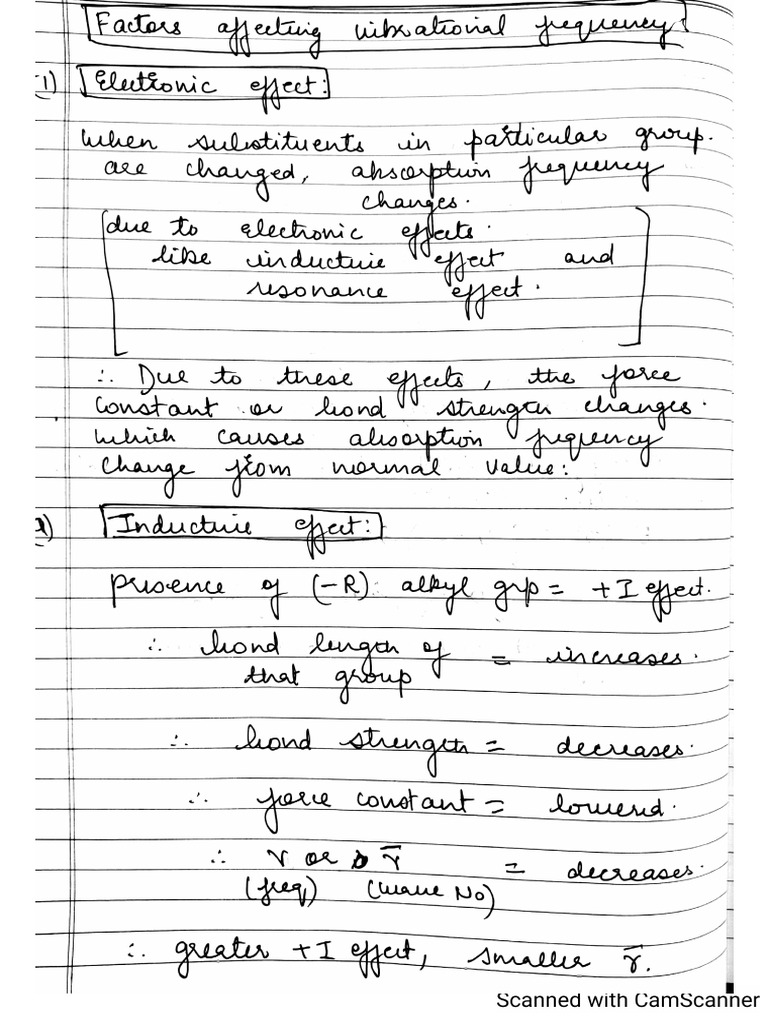 Factors affecting vibrational frequency:
1) Electronic effect:
When substituents in particular group.
are changed, absorption frequency
changes.
due to electronic effects.
like inductive effect and
resonance effect.
∴ Due to these effects, the force
constant or bond strength changes.
which causes absorption frequency
change from normal value:
Inductive effect:
presence of (-R) alkyl grp = +I effect.
∴ bond length of = increases.
that group
∴ bond strength = decreases.
∴ force constant = lowered.
∴ ν or ν̅ = decreases.
(freq) (wave No)
∴ greater +I effect, smaller ν̅.
Scanned with CamScanner